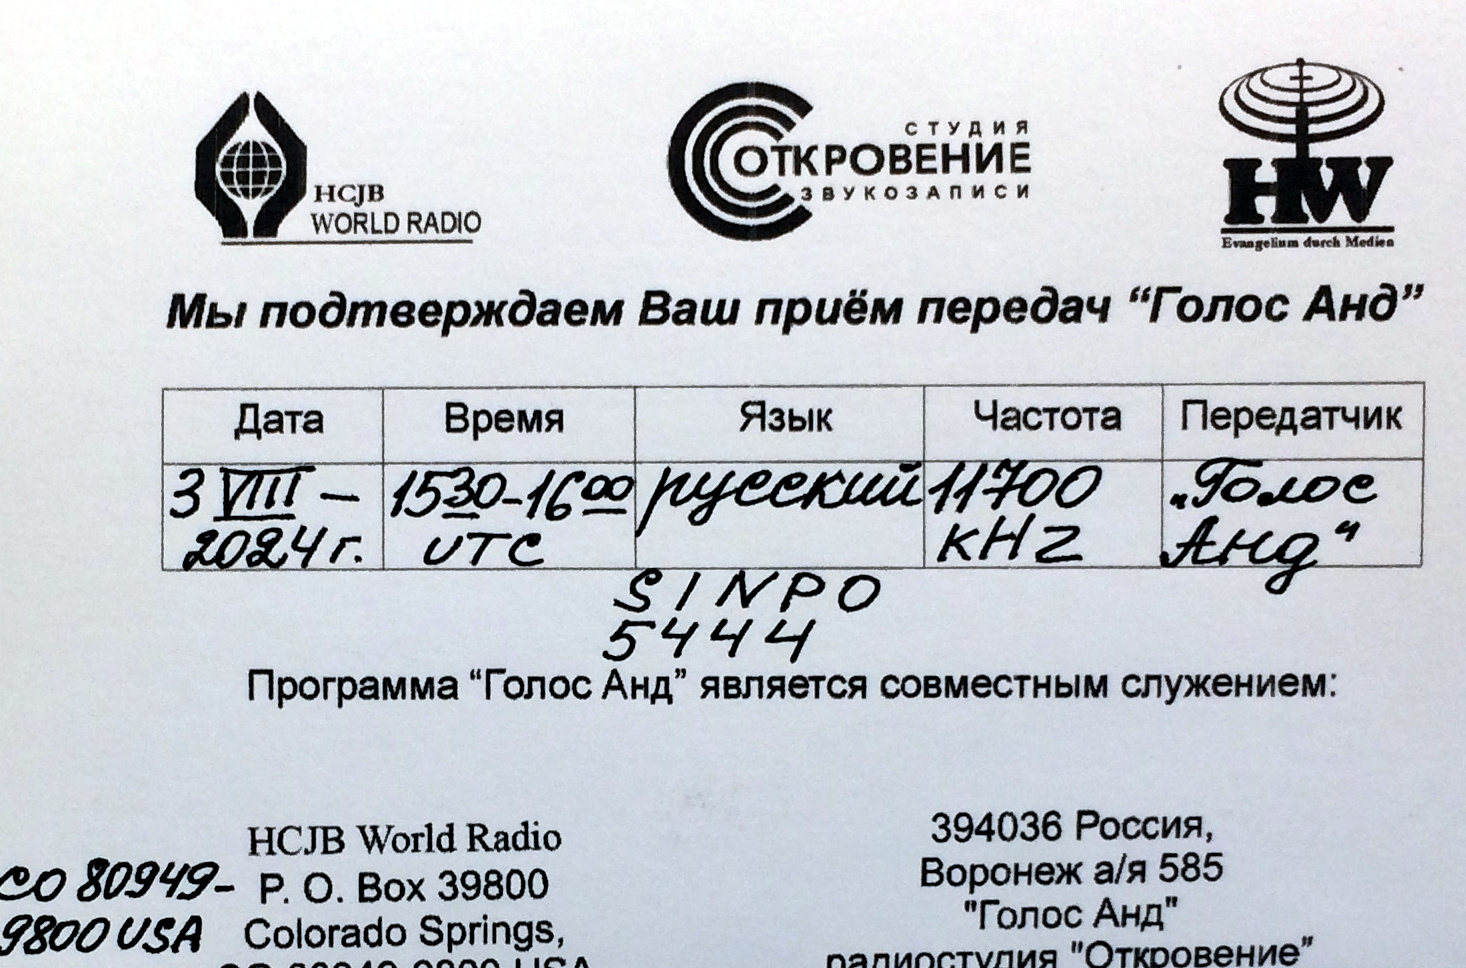 HCJB
WORLD RADIO
СТУДИЯ
ОТКРОВЕНИЕ
ЗВУКОЗАПИСИ
HW
Evangelium durch Medien
Мы подтверждаем Ваш приём передач “Голос Анд”
Дата Время Язык Частота Передатчик
3 VIII – 15 30 - 16 00 русский 11700 „Голос
2024 г. UTC kHz Анд“
SINPO
5444
Программа “Голос Анд” является совместным служением:
HCJB World Radio
P. O. Box 39800
Colorado Springs,
CO 80949-9800 USA
CO 80949-
9800 USA
394036 Россия,
Воронеж а/я 585
"Голос Анд"
радиостудия "Откровение"